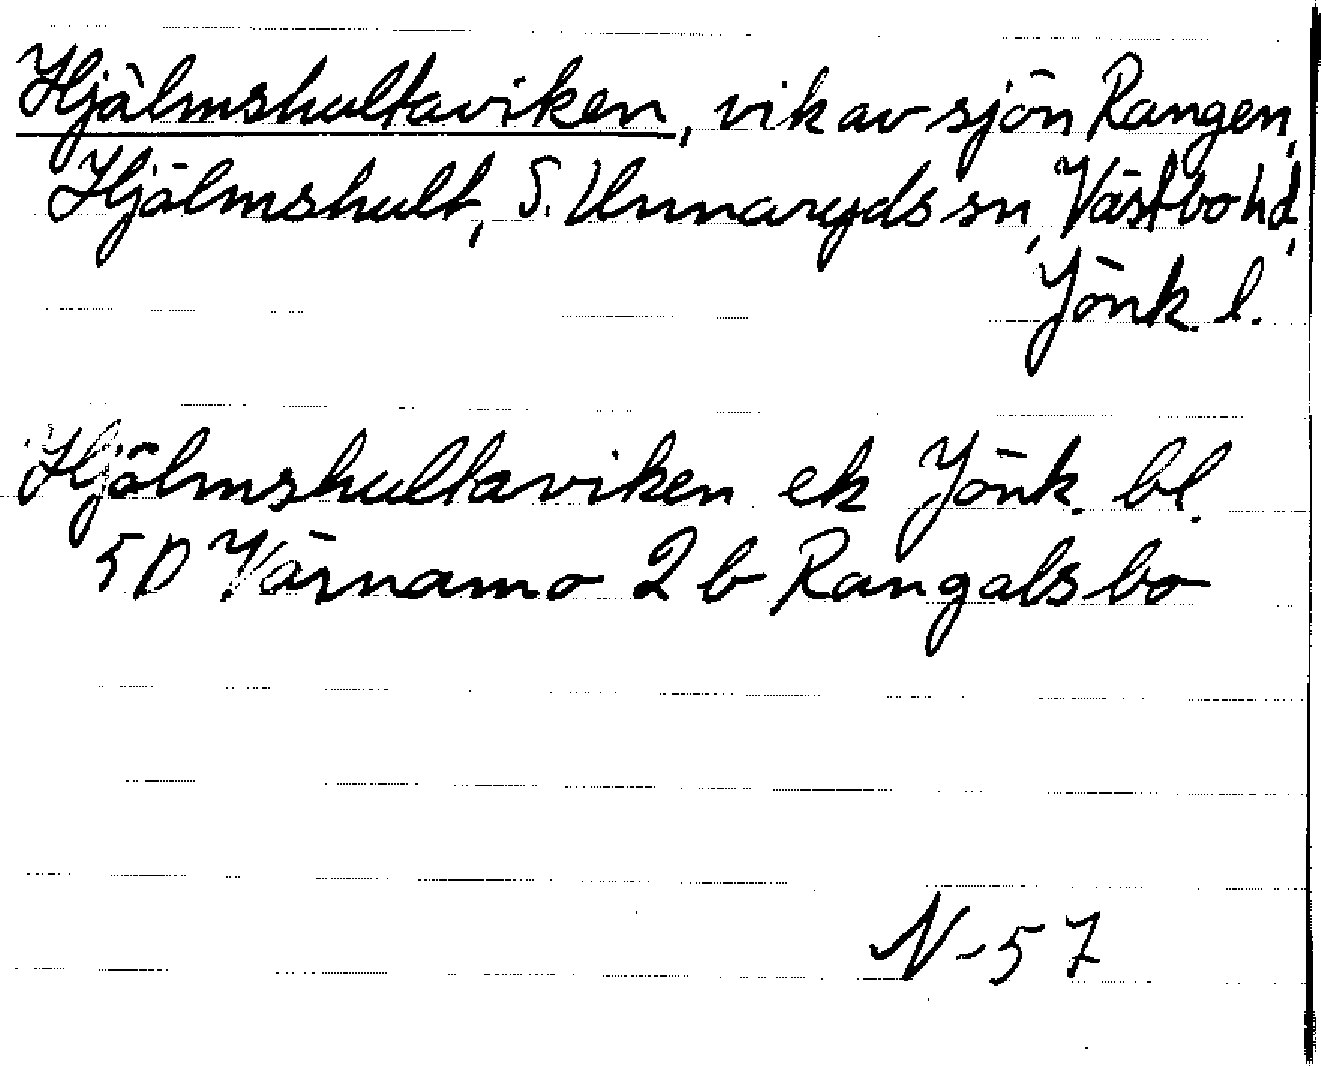 Hjälmshultaviken, vik av sjön Rangen,
Hjälmshult, S. Unnaryds sn, Västbo hd,
Jönk. l.
Hjälmshultaviken ek Jönk. bl.
5D Värnamo 2 b Rangalsbo
N-57